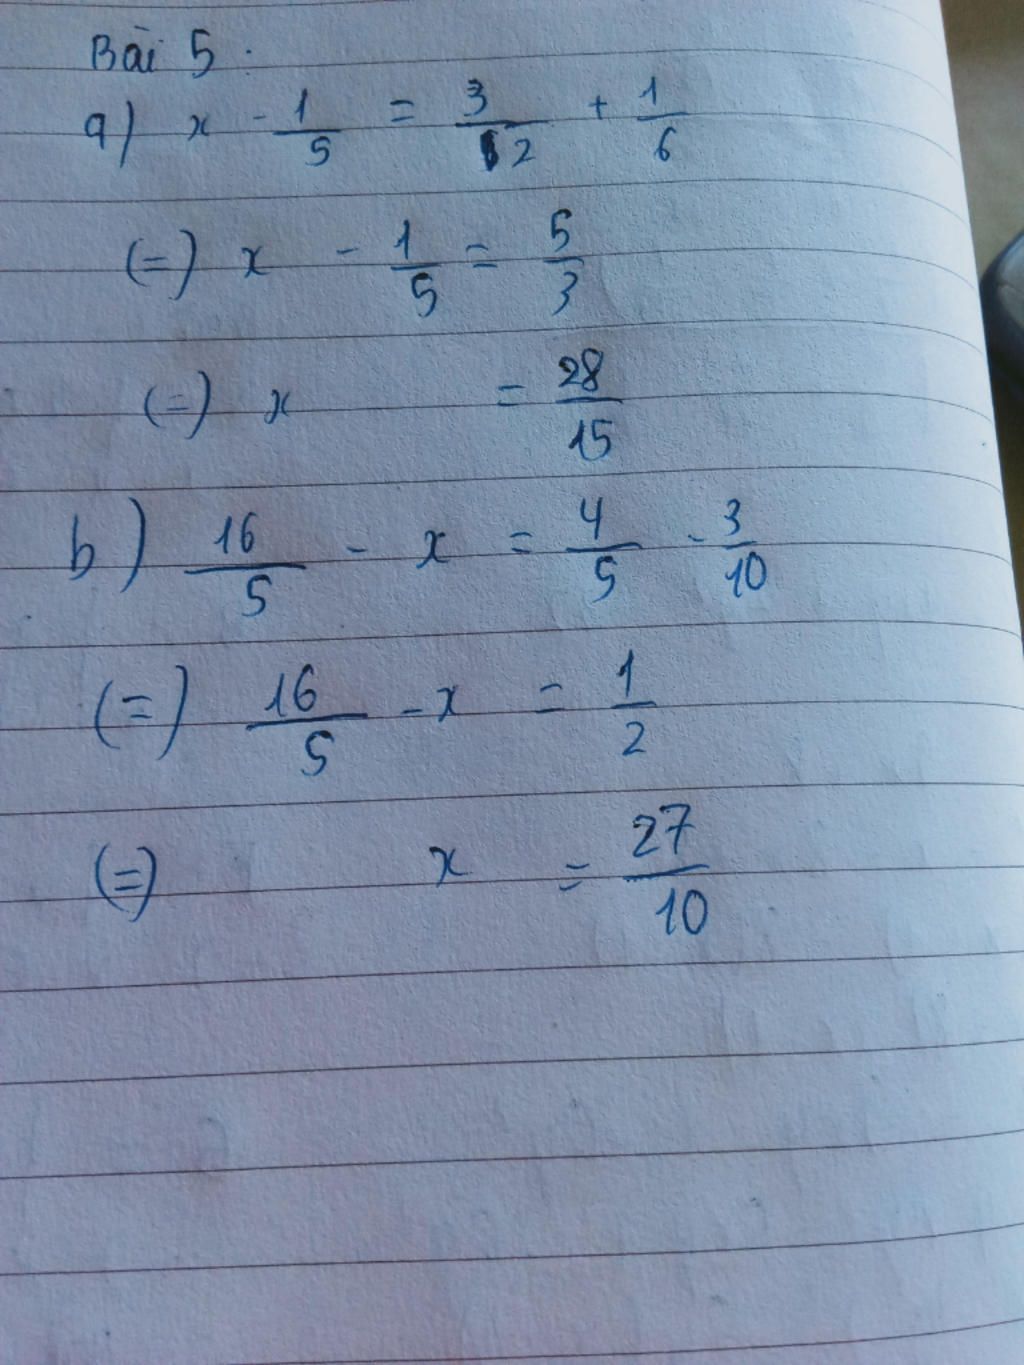 Bài 5:
a) x - 1/5 = 3/2 + 1/6
(=) x - 1/5 = 5/3
(=) x = 28/15
b) 16/5 - x = 4/5 - 3/10
(=) 16/5 - x = 1/2
(=) x = 27/10